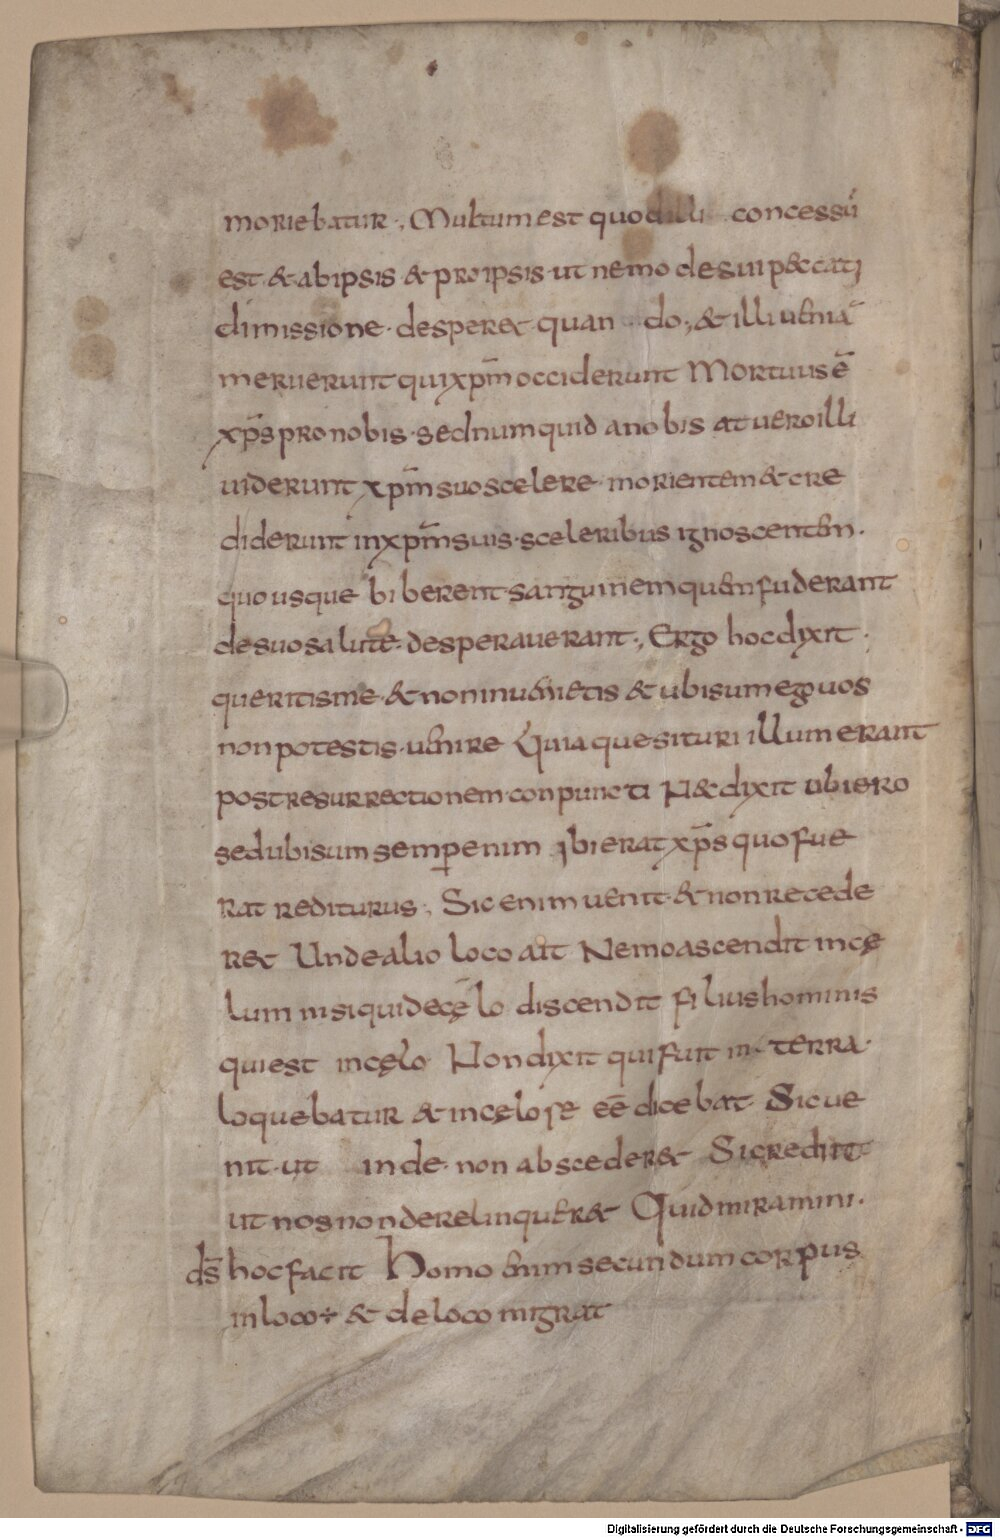 moriebatur., Multum est quod illi concessū
est & ab ipsis & pro ipsis ut nemo de sui p&cati
dimissione. desperet. quan do., & illi ueniā
meruerunt qui xp̄m occiderunt Mortuus ē
xp̄s pro nobis. sed numquid a nobis at uero illi
uiderunt xp̄m suo scelere. morientem & cre
diderunt in xp̄m suis. sceleribus ignoscentem.
quousque biberent sanguinem quem fuderant
de suo salute. desperauerant., Ergo hoc dixit.
queritis me. & non inuenietis & ubi sum ego uos
non potestis. uenire Quia quesituri illum erant
post resurrectionem. conpuncti N& dixit ubi ero
sed ubi sum semper enim ibi erat xp̄s quo fue
rat rediturus., Sic enim uenit. & non recede
ret Unde alio loco ait Nemo ascendit in cę
lum nisi qui de cęlo discendit filius hominis
qui est in cęlo Non dixit qui fuit in terra.
loquebatur & in cęlo se eē dicebat. Sic ue
nit. ut inde. non absceder& Sic redit
ut nos non derelinquer& Quid miramini.
ds̄ hoc facit Homo enim secundum corpus
in loco ÷ & de loco migrat
Digitalisierung gefördert durch die Deutsche Forschungsgemeinschaft - DFG